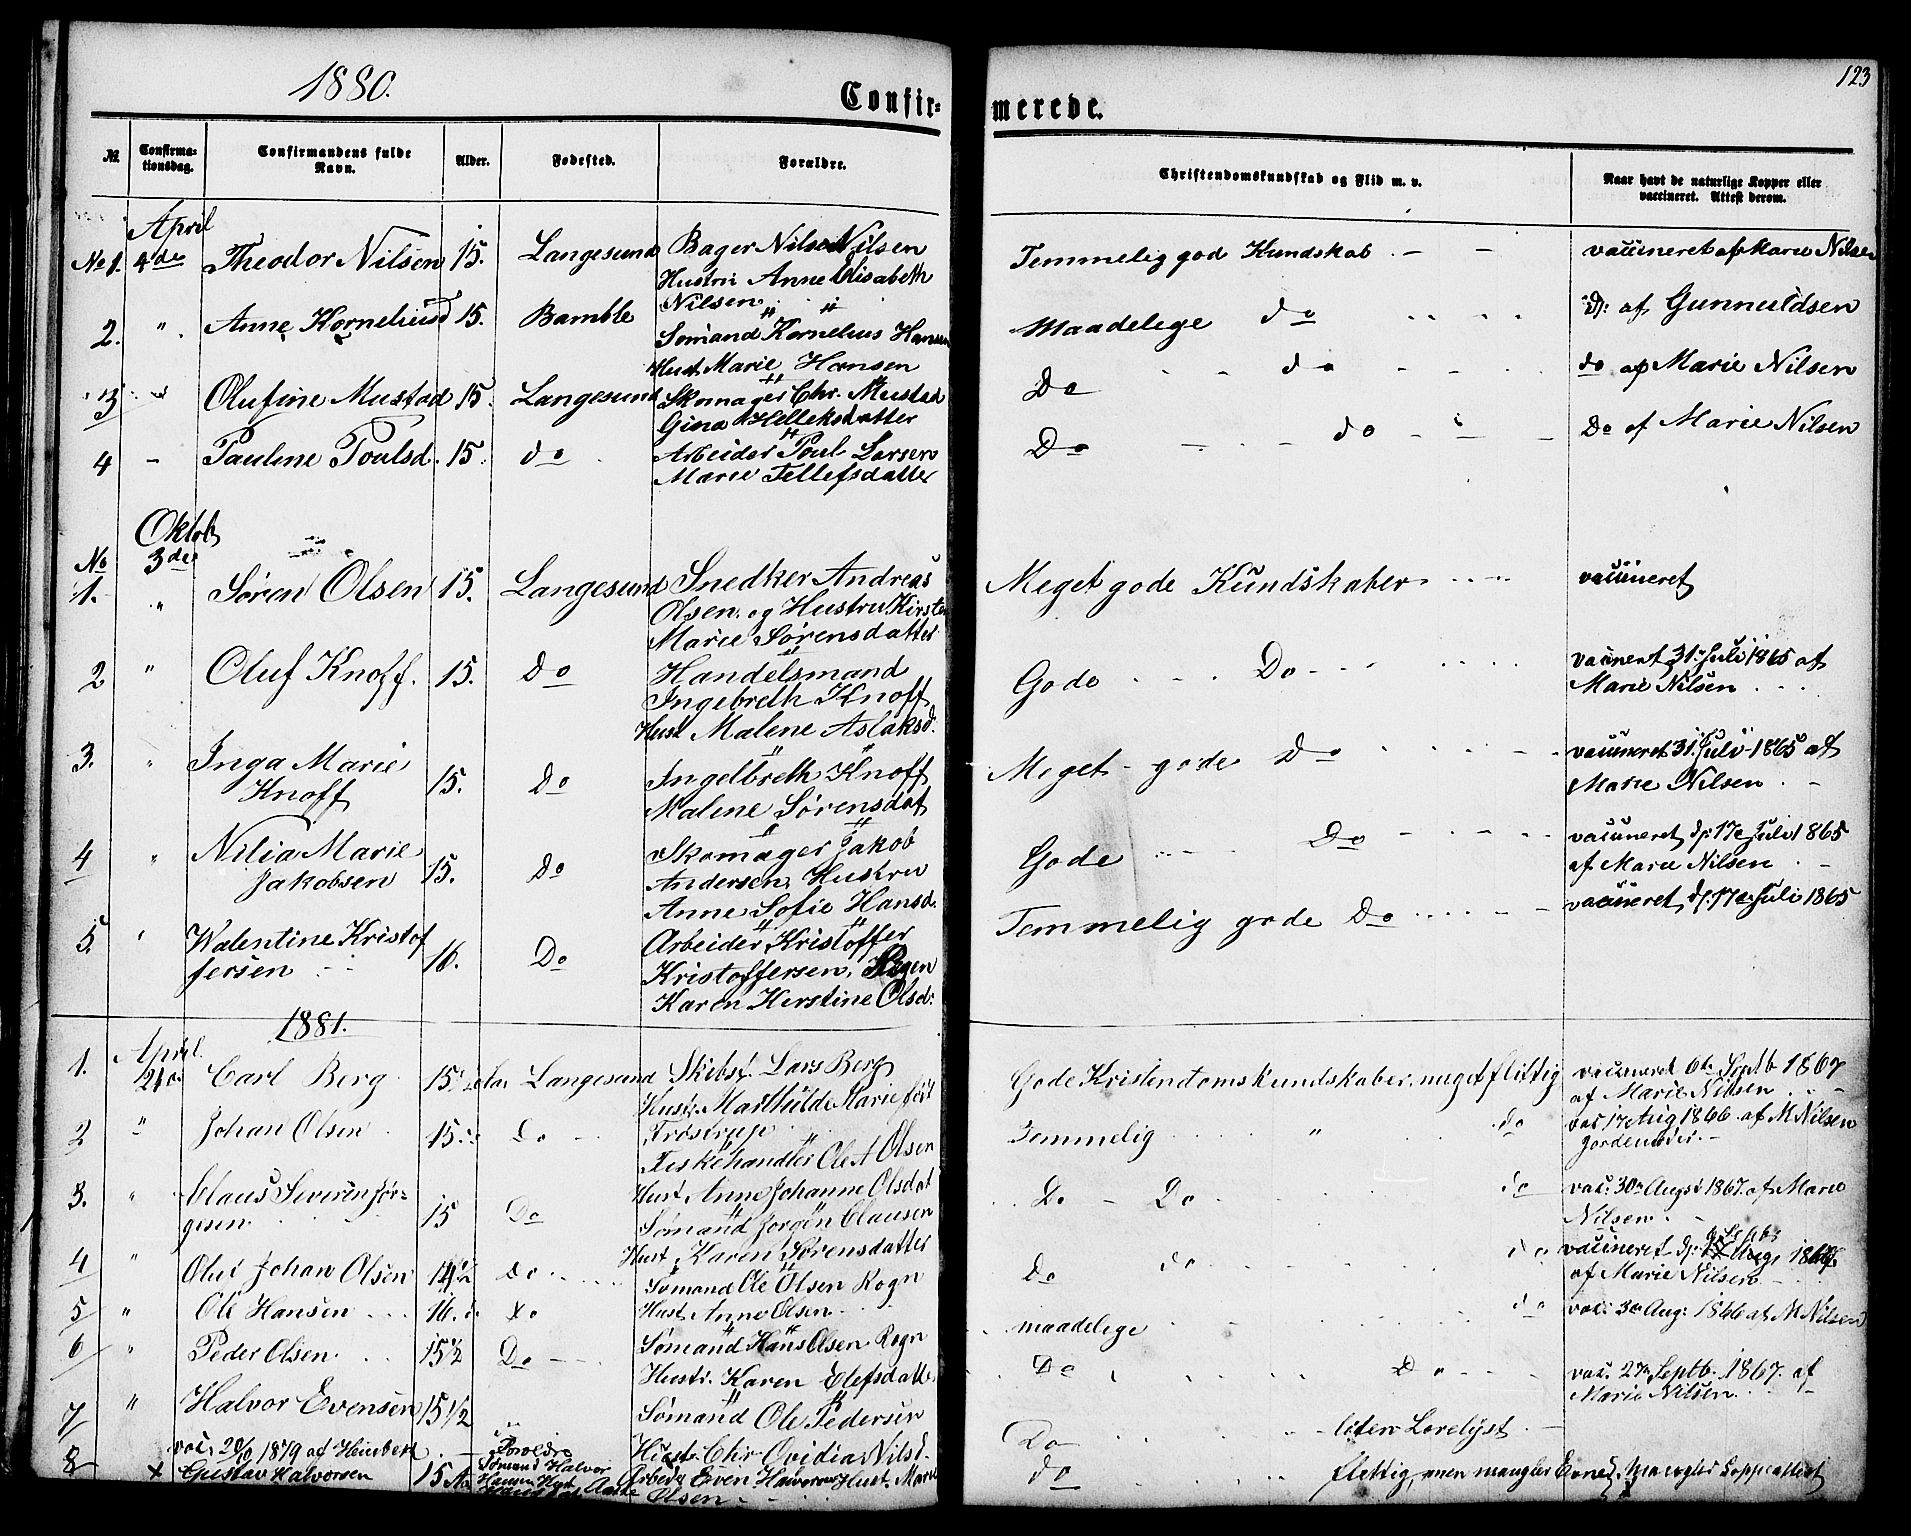 1880.
123
Confir-
merede.
No. Confirma-tionsdag. Confirmandens fulde Navn. Alder. Fodested. Forældre. Christendomskundskab og Flid m. v. Naar havt de naturlige Kopper eller vaccineret. Attest derom.
April
No 1. 4de Theodor Nilsen 15. Langesund Bager Nils Nilsen Temmelig god Kundskab - - vaccineret af Marie Nilsen
Hustru Anne Elisabeth
Nilsen
2. " Anne Korneliusd 15. Bamble Sømand Kornelius Hansen Maadelige do D: af Gunnuldsen
Hust. Marie Hansen
3 " Olufine Mustad 15. Langesund Skomager Chr. Mustad Do do do af Marie Nilsen
Gina Helleksdatter
4 - Pauline Poulsd. 15. do Arbeider Poul Larsen Do do Do af Marie Nilsen
Marie Tellefsdatter
Oktob
No 3de
1. " Søren Olsen 15. Langesund Snedker Andreas Meget gode Kundskaber vaccineret
Olsen og Hustru Kirsten
Marie Sørensdatter
2 " Oluf Knoff. 15. Do Handelsmand Gode Do vaccineret 31. Juli 1865 af
Ingebreth Knoff Marie Nilsen
Hust Malene Aslaksd.
3. " Inga Marie Knoff 15. Do Ingelbreth Knoff Meget gode Do vaccineret 31. Juli 1865 af
Malene Sørensdat Marie Nilsen
4 " Nilia Marie Jakobsen 15. Do Skomager Jakob Gode Do vaccineret d: 17e Juli 1865
Andersen, Hustru af Marie Nilsen
Anne Sofie Hansd.
5. " Walentine Kristoffersen 16. Do Arbeider Kristoffer Temmelig gode Do vaccineret d: 17e Juli 1865
Kristoffersen,
Karen Kerstine Olsd:
1881.
April
1. Carl Berg 15 Langesund Skibsf. Lars Berg Gode Kristendomskundskaber, meget flittig vaccineret 6te Septb 1867
Marie født af Marie Nilsen
2 " Johan Olsen 15 Do Trøstrup Temmelig " do vac 17 Aug 1866 af M Nilsen
Fiskehandler Ole A Olsen Jordemoder. -
3. " Claus Severin Jør- 15 Do Hust Anne Johanne Olsdat Do - Do do vac: 30te August 1867 af Marie
gesen Sømand Jørgen Clausen Nilsen
4 " Oluf Johan Olsen 14 1/2 Do Hust. Karen Sørensdatter Do do do vaccineret 186
Sømand Ole Olsen Rogn af Marie Nilsen
5 " Ole Hansen 16 Do Hust Anne Olsen maadelige do vac: 3 Aug: 1866 af M Nilsen
6 " Peder Olsen 15 1/2 Do Sømand Hans Olsen Rogn Do Do vac. 27 Septb. 1867. af
Hustr. Karen Elefsdatte Marie Nilsen
7 " Halvor Evensen 15 1/2 Sømand Ole Pedersen Do liden Lærelyst
vac. 20/10 1879 af Heiberh Forældre Hustr Chr Ovidia Nilsd.
8 x Gustav Halvorsen 15 Sømand Halvor Arbeid Even Halvorsen Hust. Marie do flittig, men mangler Evne Mangler Koppeattest
Hansen Olsen